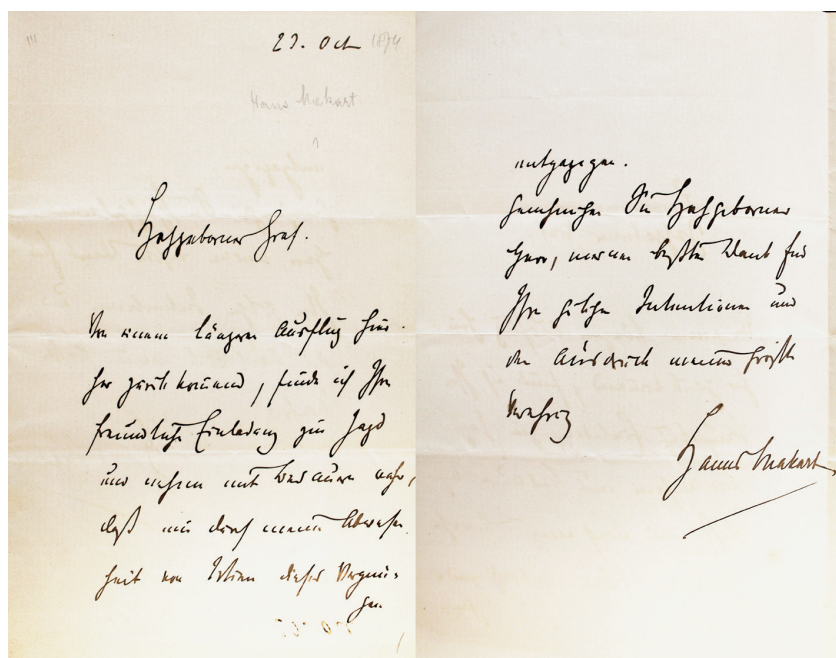 27. Oct 1874
Hans Makart
Hochgeborner Graf.
Von einem längern Ausflug hier-
her zurükkommend, finde ich Ihre
freundliche Einladung zur Jagd
und nehme mit Bedauern wahr,
daß mir durch meine Abwesen-
heit von Wien dieses Vergnü-
gen
entgegangen.
Genehmigen Sie Hochgeborner
Herr, meinen besten Dank für
Ihre gütigen Intentionen und
den Ausdruck meiner größten
Verehrung
Hanns Makart